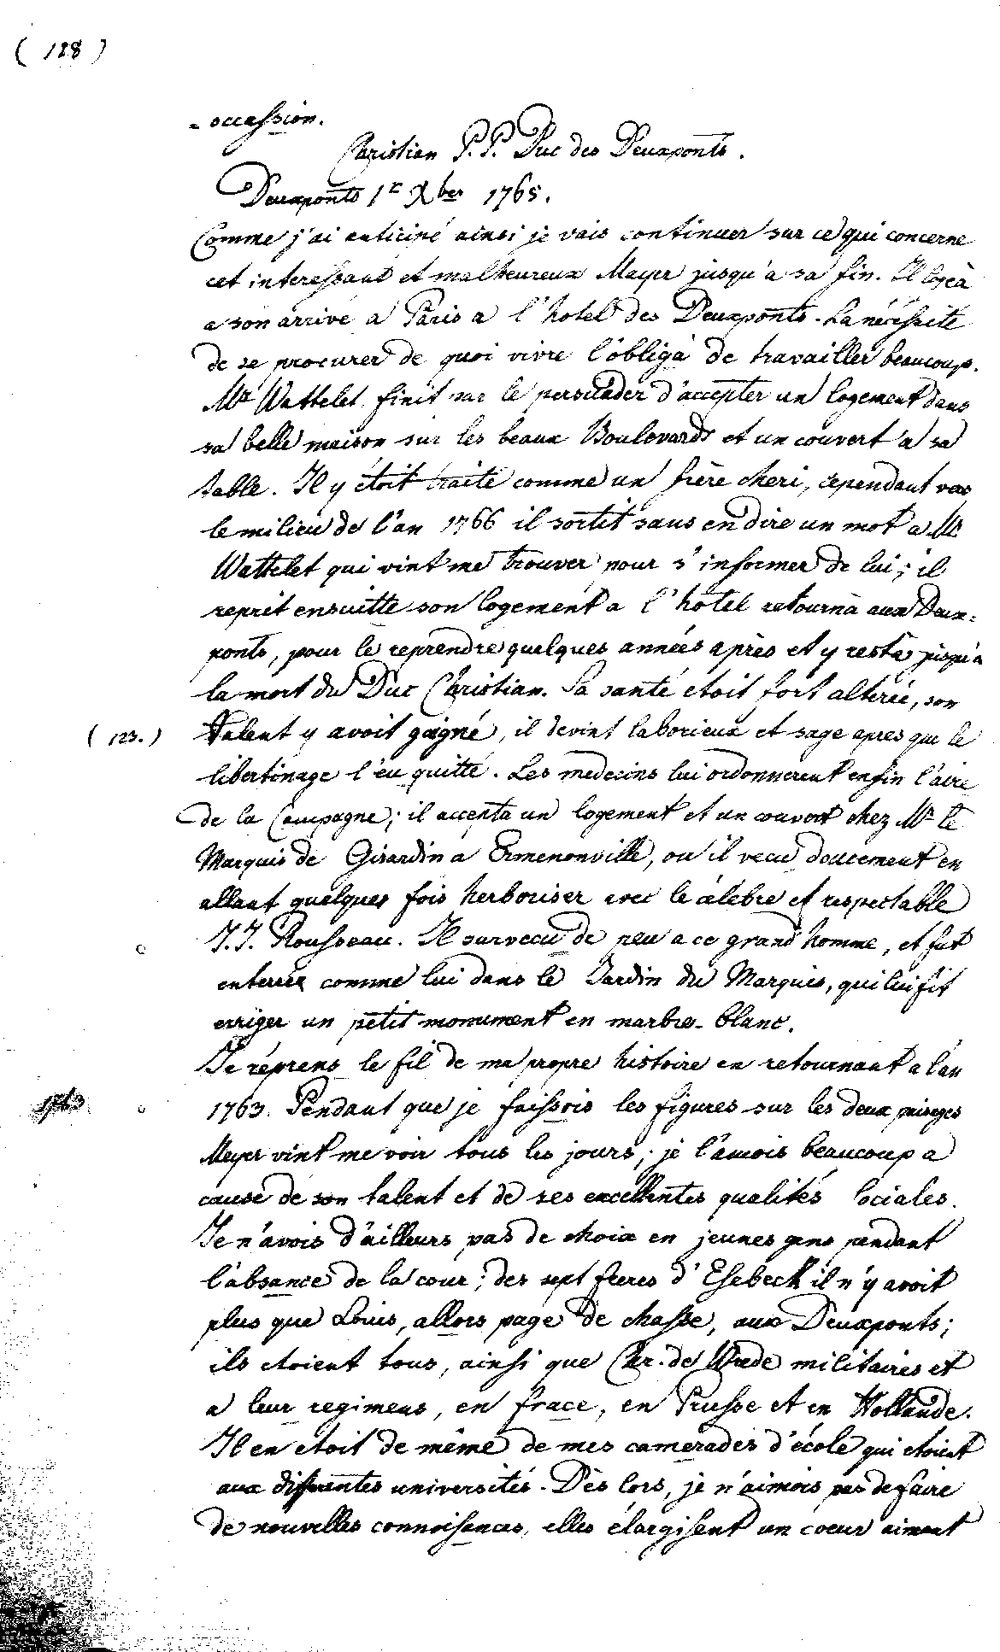 ( 128 )
- occassion.
Christian P. P. Duc des Deuxponts.
Deuxponts 1r Xber 1765.
Comme j'ai anticiné ainsi je vais continuer sur ce qui concerne
cet interessant et malheureux Mayer jusqu'a sa fin. Il logea
a son arrivé a Paris a l'hotel des Deuxponts. La nécéssité
de se procurer de quoi vivre l'obligà de travailler beaucoup.
Mr Wattelet finit par le persuader d'accepter un logement dans
sa belle maison sur les beaux Boulevards et un couvert a sa
table. Il y étoit traité comme un frère cheri, cependant vers
le milieu de l'an 1766 il sortit sans en dire un mot a Mr
Wattelet qui vint me trouver pour s'informer de lui; il
reprit ensuitte son logement a l'hotel retourna aux Deux-
ponts, pour le reprendre quelques années après et y resta jusqu'a
la mort du Duc Christian. Sa santé etoit fort altérée, son
( 123. ) talent y avoit gaigné, il devint laborieux et sage apres que le
libertinage l'eu quitté. Les medecins lui ordonnerent enfin l'aire
de la Campagne; il accepta un logement et un couvert chez Mr le
Marquis de Girardin a Ermenonville, ou il vecu doucement en
allant quelques fois herboriser avec le célèbre et respectable
J. J. Rousseau. Il survecu de peu a ce grand homme, et fut
enterrée comme lui dans le Jardin du Marquis, qui lui fit
erriger un petit monument en marbre-blanc.
Je réprens le fil de ma propre histoire en retournant a l'an
1763 1763. Pendant que je faissois les figures sur les deux
Mayer vint me voir tous les jours; je l'aimois beaucoup a
cause de son talent et de ses excellentes qualités sociales.
Je n'avois d'ailleurs pas de choix en jeunes gens pendant
l'absance de la cour; des sept freres d'Esebeck il n'y avoit
plus que Louis, allors page de chasse, aux Deuxponts;
ils etoient tous, ainsi que Chr. de Wrede militaires et
a leur regimens, en france, en Prusse et en Hollande.
Il en etoit de même de mes camerades d'école qui etoient
aux differentes universités. Dès lors, je n'aimois pas de faire
de nouvelles connoisances, elles élargisent un coeur aimant